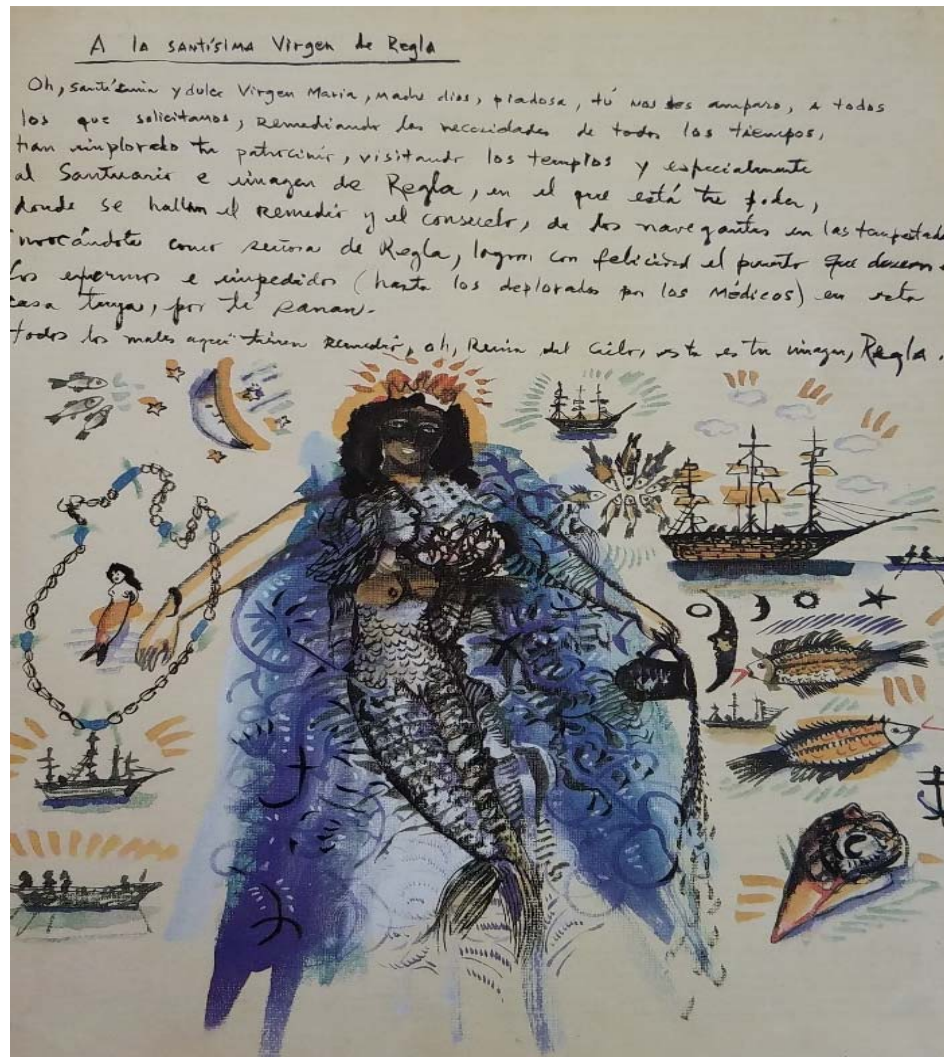 A la SANTÍSIMA Virgen de Regla
Oh, santísima y dulce Virgen Maria, madre dios, piadosa, tú nos des amparo, a todos
los que solicitamos, Remediando las necesidades de todos los tiempos,
han implorado tu patrocinio, visitando los templos y especialmente
al Santuario e imagen de Regla, en el que está tu poder,
donde se hallan el remedio y el consuelo, de los navegantes en las tempetad
invocándote como señora de Regla, logran con felicidad el puerto que desean
Los enfermos e impedidos (hasta los deplorados por los Médicos) en esta
casa tuya, por ti sanan.
todos los males aquí tienen remedio, oh, Reina del Cielo, esta es tu imagen, Regla.